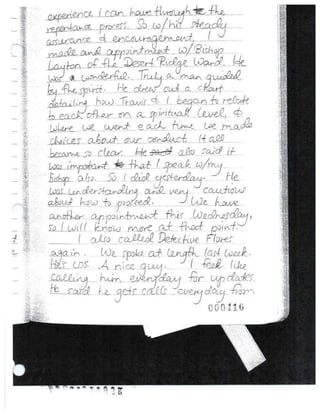 experience I can have through the
repentance process. So w/his steady
assurance & encouragement, I
made and appointment w/Bishop
Layton of the Desert Ridge Ward. He
was a wonderful. Truly a man guided
by the spirit. He drew out a chart
detailing how Travis & I began to relate
to each other on a spiritual level, &
where we went each time we made
choices about our conduct. It all
became so clear. He said also said it
was important that I speak w/my
Bishop also. So I did yesterday. He
was understanding and very cautious
about how to proceed. We have
another appointment this Wednesday,
so I will know more at that point.
I also called Detective Flores
again. We spoke at length last week.
He's LDS. A nice guy. I feel like
calling him everyday for updates.
He said he gets calls everyday from
000416